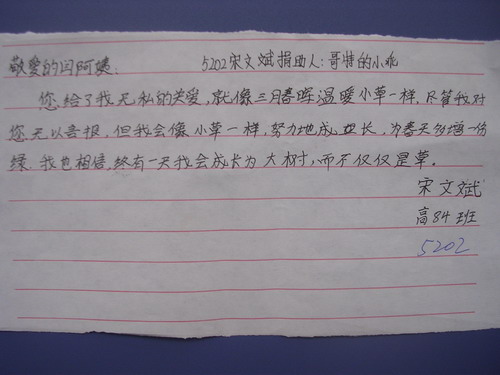 敬爱的闫阿姨: 5202宋文斌捐助人:哥特的小乖
您给了我无私的关爱,就像三月春晖温暖小草一样,尽管我对
您无以言报,但我会像小草一样,努力地成长,为春天多增一份
绿.我也相信,终有一天我会成长为大树,而不仅仅是草。
宋文斌
高84班
5202